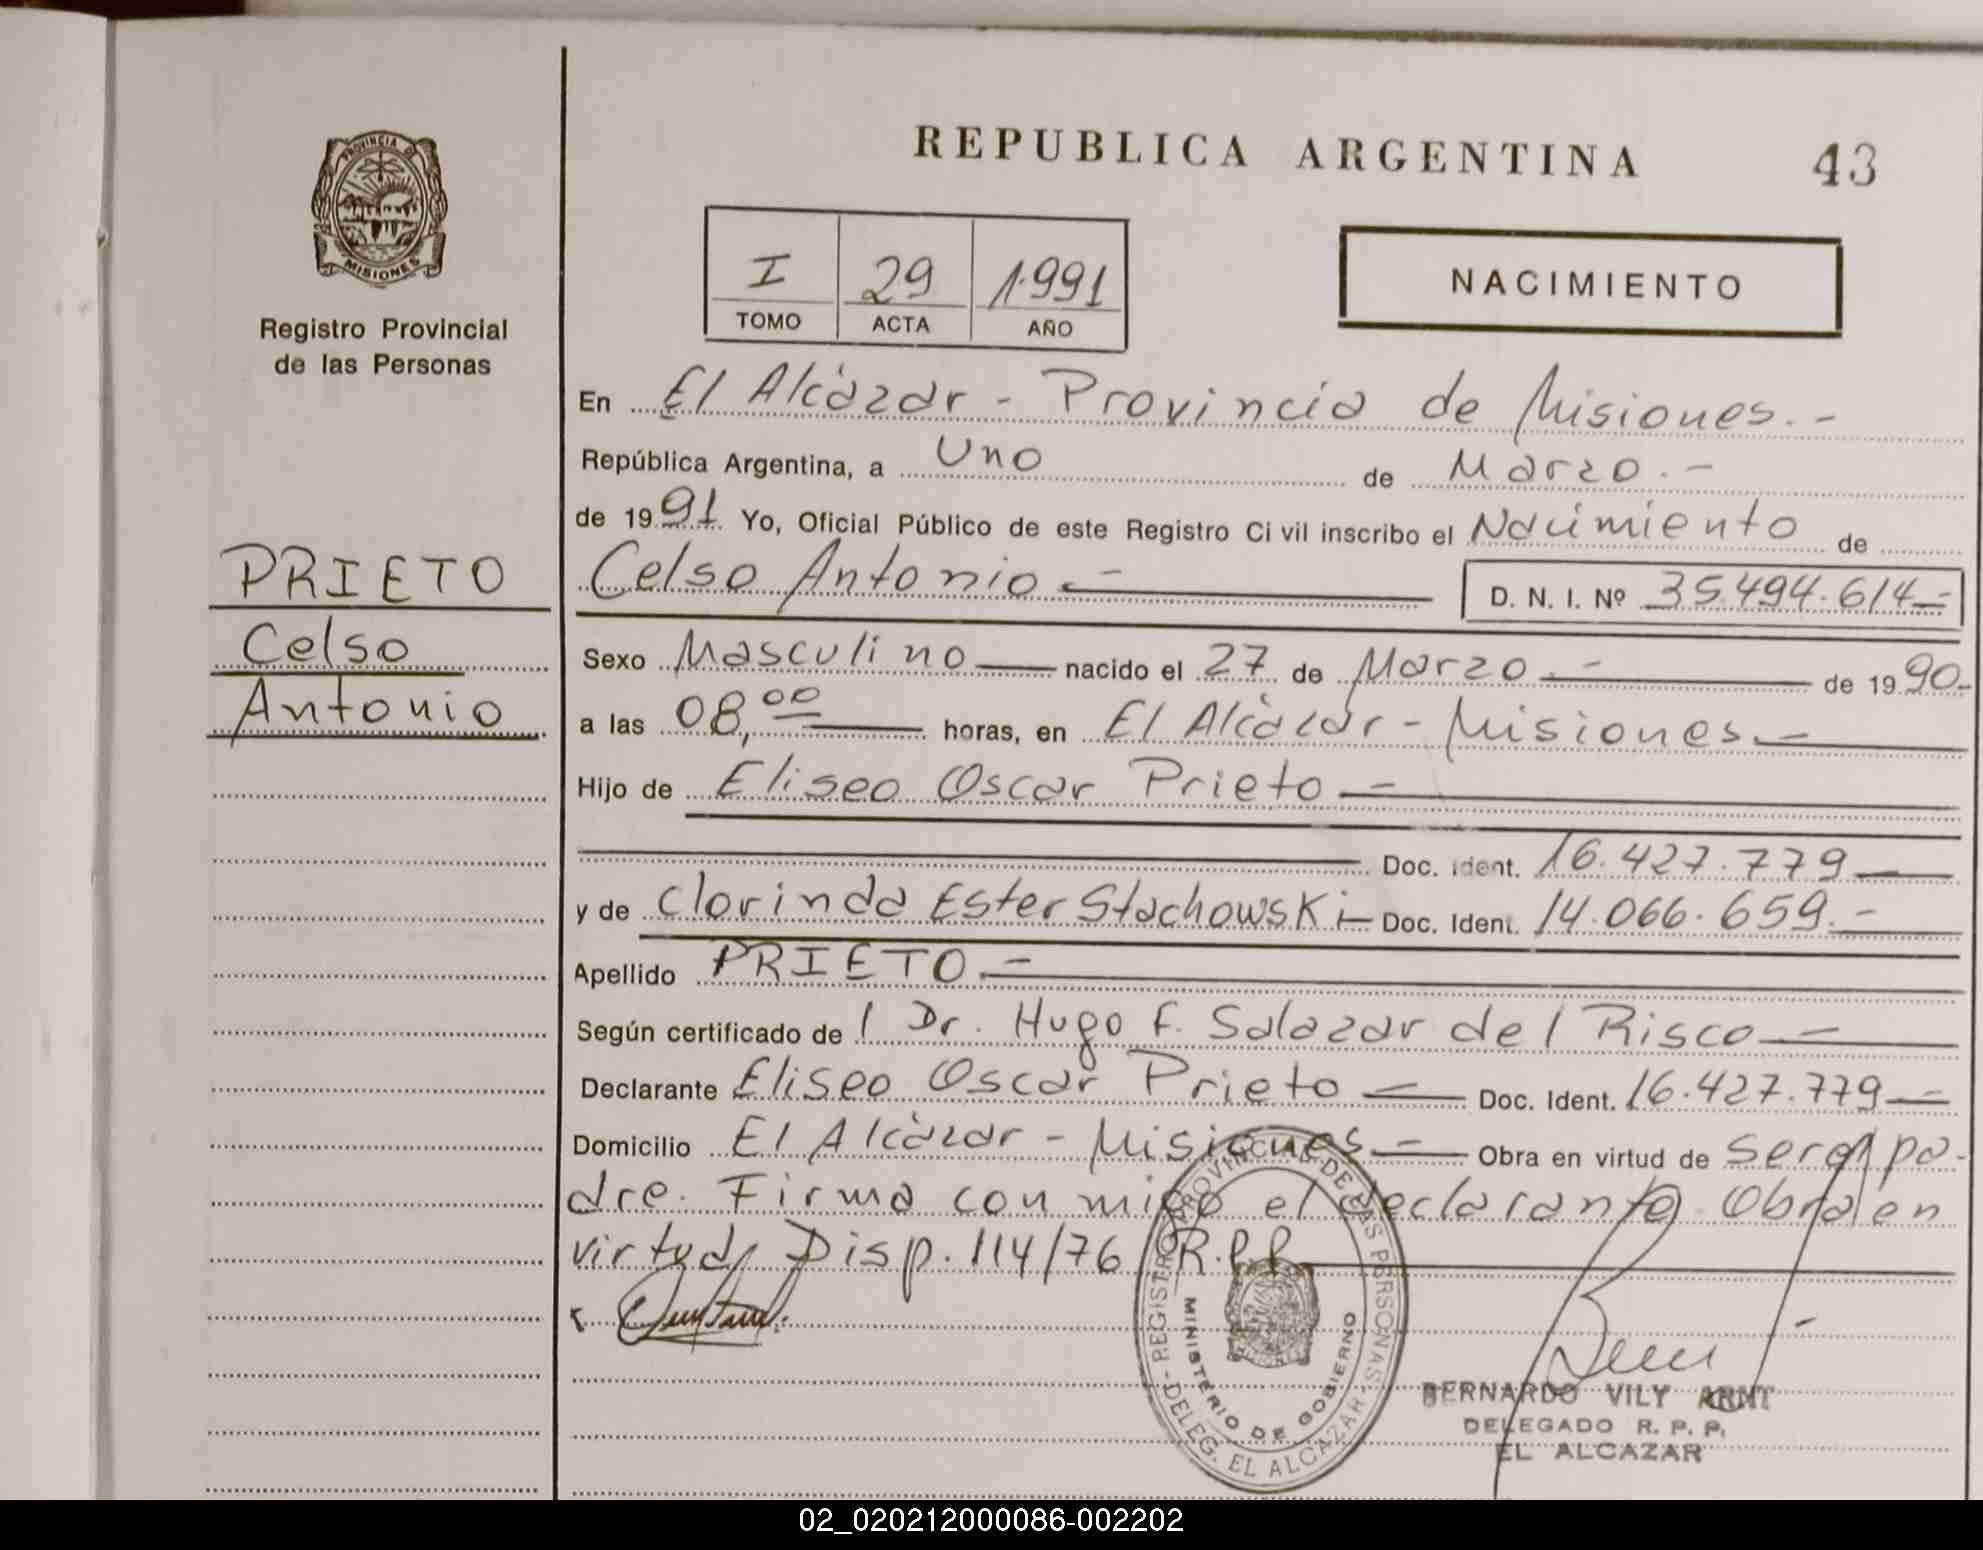 PROVINCIA DE
MISIONES
Registro Provincial
de las Personas
PRIETO
Celso
Antonio
REPUBLICA ARGENTINA 43
I 29 1.991
TOMO ACTA AÑO
NACIMIENTO
En El Alcázar - Provincia de Misiones.-
República Argentina, a Uno de Marzo.-
de 1991. Yo, Oficial Público de este Registro Ci vil inscribo el Nacimiento de
Celso Antonio - D. N. I. Nº 35.494.614-
Sexo Masculino nacido el 27 de Marzo.- de 1990-
a las 08,00 horas, en El Alcázar - Misiones-
Hijo de Eliseo Oscar Prieto -
Doc. Ident. 16.427.779
y de Clorinda Ester Stachowski- Doc. Ident. 14.066.659.-
Apellido PRIETO.-
Según certificado de l Dr. Hugo F. Salazar del Risco -
Declarante Eliseo Oscar Prieto - Doc. Ident. 16.427.779-
Domicilio El Alcázar - Misiones - Obra en virtud de ser el pa-
dre. Firma con migo el declarante. Obra en
virtud Disp. 114/76 R.P.P.
REGISTRO PROVINCIAL DE LAS PERSONAS - DELEG. EL ALCAZAR -
MINISTERIO DE GOBIERNO
BERNARDO VILY ARNT
DELEGADO R. P. P.
EL ALCAZAR
02_020212000086-002202